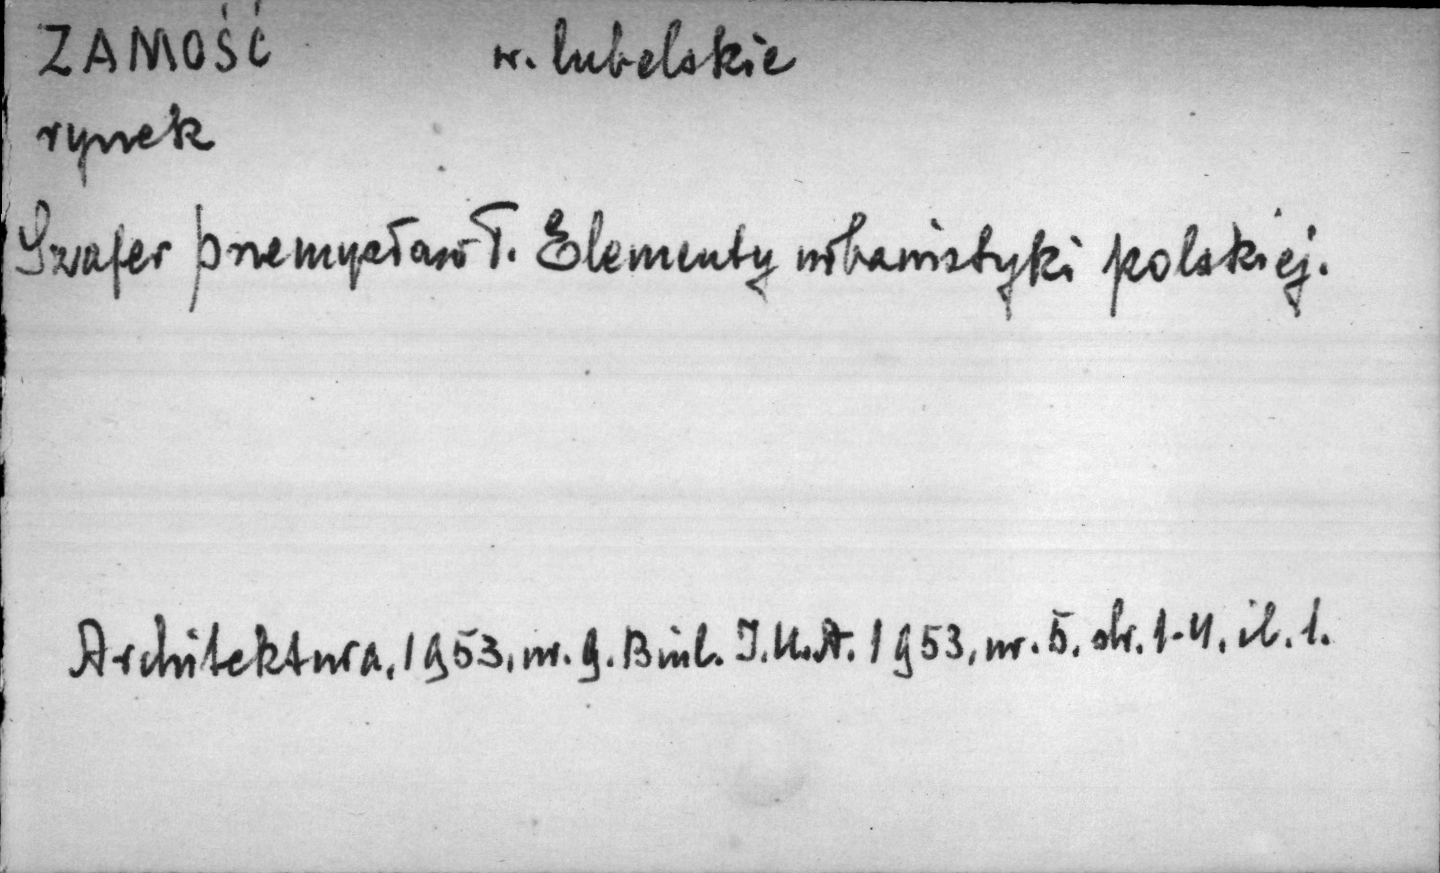 ZAMOŚĆ w. lubelskie
rynek
Szafer Przemysław T. Elementy urbanistyki polskiej.
Architektura, 1953, nr. 9. Biul. I.U.A. 1953, nr. 5. str. 1-4, il. 1.